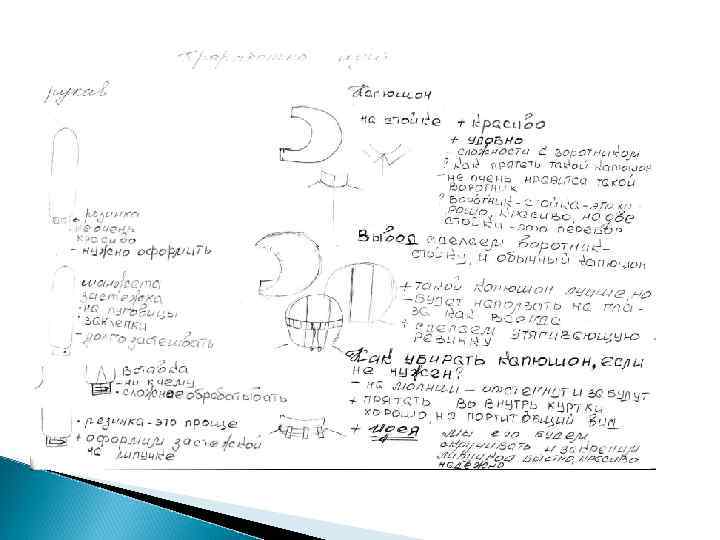 Проработка идей
рукав
- резинка
- не очень
красиво
- нужно оформить
манжета
застежка
• на пуговицы
• заклепка
- долго застегивать
вставка
- ни к чему
- сложно обрабатывать
• резинка - это проще
+ оформим застежкой
на липучке
Капюшон
на стойке + красиво
+ удобно
- сложности с воротником
? как прятать такой капюшон
- не очень нравится такой
воротник
? воротник - стойка - это хо
рошо, красиво, но две
стойки - это перебор
Вывод сделаем воротник-
стойку, и обычный капюшон
+ такой капюшон лучше, но
- будет наползать на гла-
за как всегда
+ сделаем утягивающую
резинку
Как убирать капюшон, если
не нужен?
- на молнии - отстегнут и забудут
+ прятать во внутрь куртки
хорошо, не портит общий вид
+ идея мы его будем
скручивать и закрепим
липучкой быстро, красиво
надежно